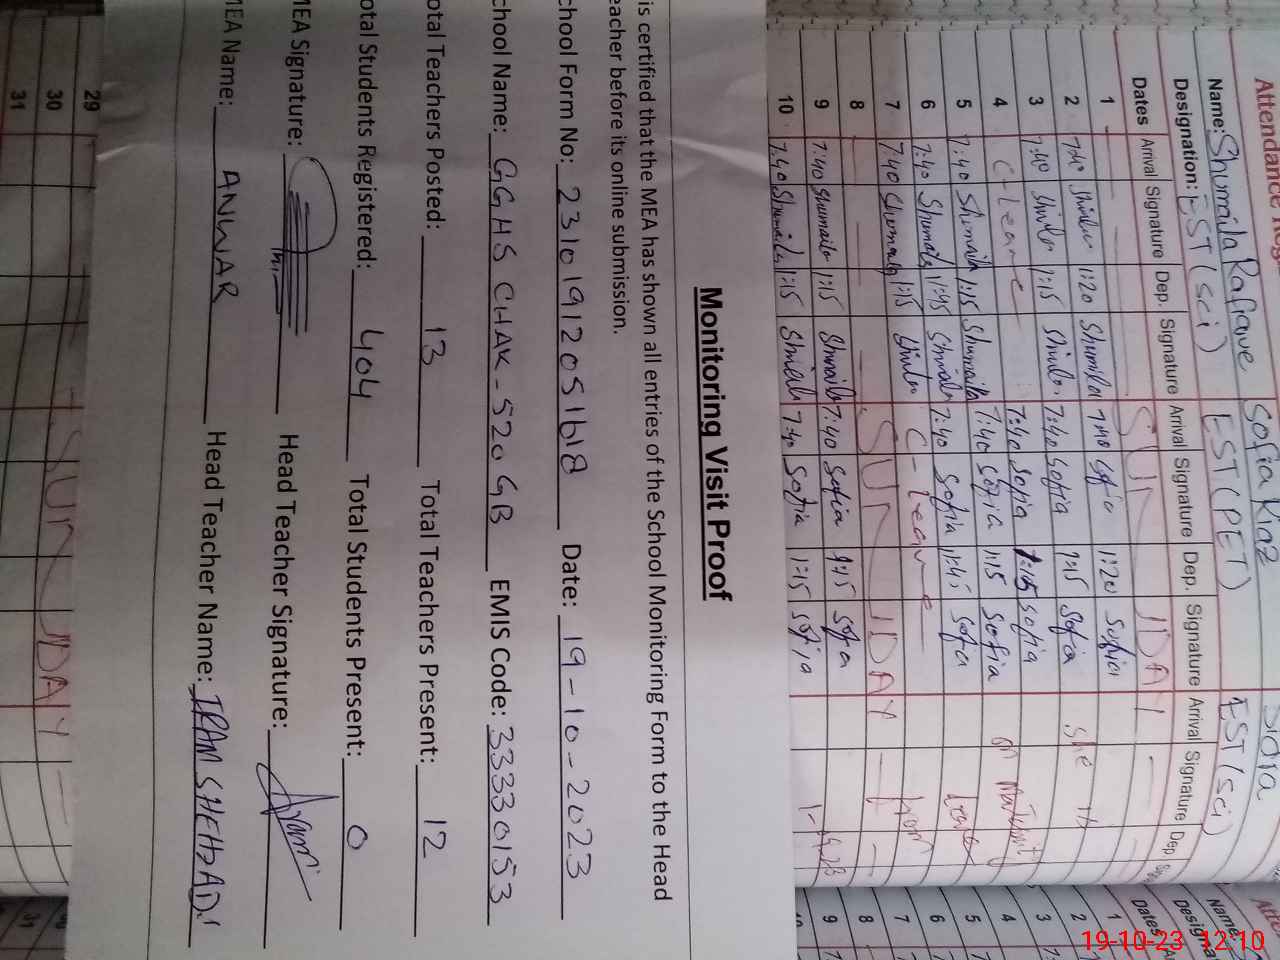 Attendance Reg
Name: Shumaila Rafique Sofia Riaz
Designation: EST (sci) EST (PET) EST (sci)
Dates Arrival Signature Dep. Signature Arrival Signature Dep. Signature Arrival Signature Dep.
1 SUNDAY
2 7:40 1:20 Shumila 7:40 Sofia 1:20 Sofia She is
3 7:40 1:15 7:40 Sofia 1:15 Sofia
4 C-Leave 7:40 Sofia 1:15 Sofia on
5 7:40 Shumaila 1:15 Shumaila 7:40 Sofia 1:15 Sofia Leave
6 7:40 Shumaila 1:45 7:40 Sofia 1:45 Sofia
7 7:40 Shumaila 1:15 C-Leave from
8 SUNDAY
9 7:40 Shumaila 1:15 Shumaila 7:40 Sofia 1:15 Sofia
10 7:40 Shumaila 1:15 7:40 Sofia 1:15 Sofia
Monitoring Visit Proof
is certified that the MEA has shown all entries of the School Monitoring Form to the Head
eacher before its online submission.
chool Form No: 23101912051618 Date: 19-10-2023
chool Name: GGHS CHAK-520 GB EMIS Code: 33330153
otal Teachers Posted: 13 Total Teachers Present: 12
otal Students Registered: 404 Total Students Present: 0
MEA Signature: Head Teacher Signature:
MEA Name: ANWAR Head Teacher Name: IRAM SHEHZADI
29
30 SUNDAY
31
Name:
Dates
1
2
3
4
5
6
7
8
9
10
31
19-10-23 12:10